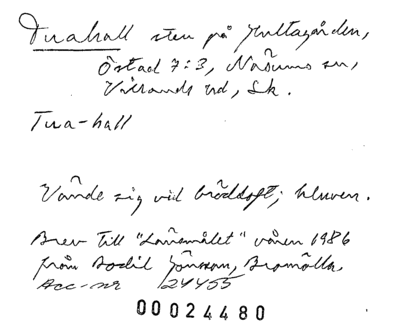 Tuahall sten på Hultagården,
Östad 7:3, Näsums sn,
Villands hd, Sk.
Tua-hall
Vände sig vid bröddoft; kluven.
Brev till "Landsmålet" våren 1986
från Bodil Jönsson, Bromölla,
Acc-nr 24455
00024480